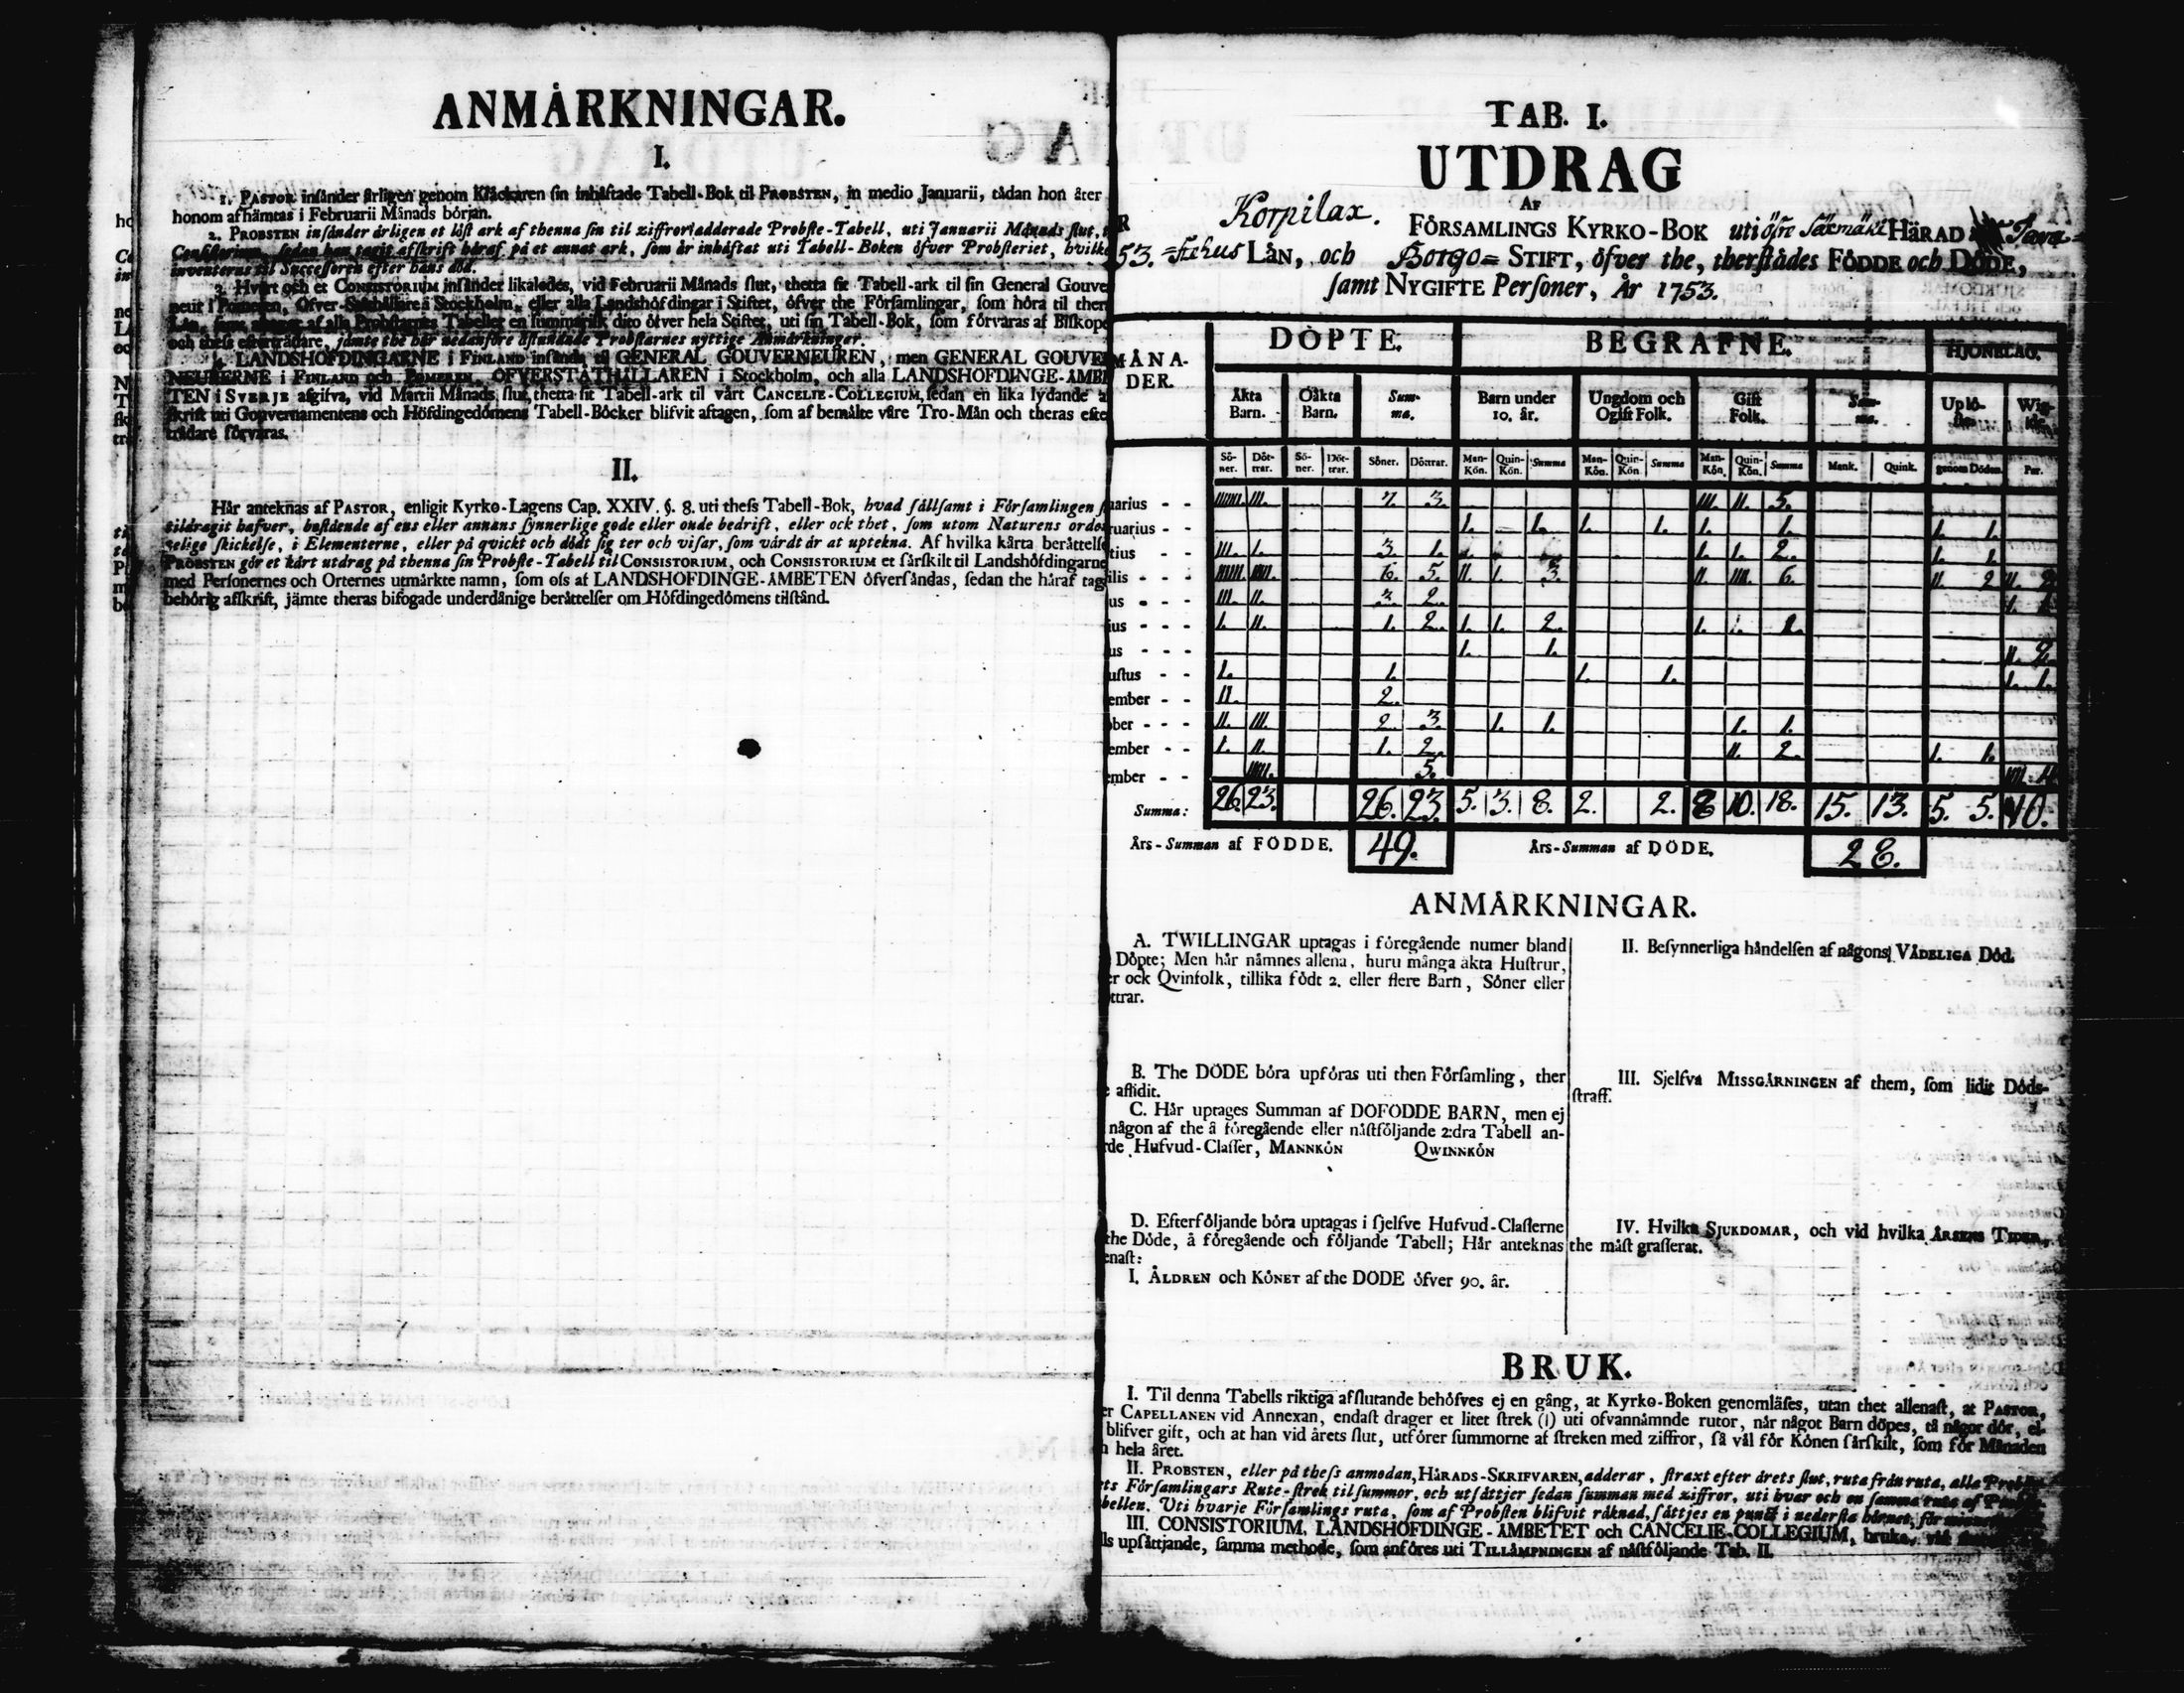 ANMÅRKNINGAR.
I.
1. PASTOR insånder årligen genom Klåckaren sin inhåftade Tabell-Bok til PROBSTEN, in medio Januarii, tådan hon åter
honom afhåmtas i Februarii Månads börjån.
2. PROBSTEN insånder årligen et löst ark af thenna sin til ziffror adderade Probste-Tabell, uti Januarii Månads slut,
Consistorium, sedan han tagit afskrift håraf på et annat ark, som år inhåftat uti Tabell-Boken öfver Probsteriet, hvilke
inventeras til Successoren efter hans död.
3. Hvart och et CONSISTORIUM insånder likaledes, vid Februarii Månads slut, thetta sit Tabell-ark til sin General Gouve
neur i Pomeren, Öfver-Ståthållare i Stockholm, eller alla Landshöfdingar i Stiftet, öfver the Församlingar, som höra til ther
Lån, af alla Probstarnes Tabeller en summarisk dito öfver hela Stiftet, uti sin Tabell-Bok, som förvaras af Biskope
och thess efterträdare, jåmte the hår nedanföre åstundade Probstarnes nyttige Anmårkningar.
4. LANDSHÖFDINGARNE i FINLAND insånda til GENERAL GOUVERNEUREN, men GENERAL GOUVE
NEURERNE i FINLAND och POMEREN, ÖFVERSTÅTHÅLLAREN i Stockholm, och alla LANDSHÖFDINGE-ÅMBE
TEN i SVERJE afgifva, vid Martii Månads slut, thetta sit Tabell-ark til vårt CANCELIE-COLLEGIUM, sedan en lika lydande a
skrift uti Gouvernamentens och Höfdingedömens Tabell-Böcker blifvit aftagen, som af bemålte våre Tro-Mån och theras efte
trådare förvaras.
II.
Hår anteknas af PASTOR, enligit Kyrko-Lagens Cap. XXIV. §. 8. uti thess Tabell-Bok, hvad sållsamt i Församlingen s
tildragit hafver, bestående af ens eller annans synnerlige gode eller onde bedrift, eller ock thet, som utom Naturens orde
telige skickelse, i Elementerne, eller på qvickt och dödt sig ter och visar, som vårdt år at uptekna. Af hvilka kårta beråttelse
PROBSTEN gör et kårt utdrag på thenna sin Probste-Tabell til CONSISTORIUM, och CONSISTORIUM et sårskilt til Landshöfdingarne
med Personernes och Orternes utmårkte namn, som oss af LANDSHÖFDINGE-ÅMBETEN öfversåndas, sedan the håraf tag
behörig afskrift, jåmte theras bifogade underdånige beråttelser om Höfdingedömens tilstånd.
TAB. I.
UTDRAG
AF
Korpilax. FÖRSAMLINGS KYRKO-BOK uti öfre Säxmäki HÄRAD Tava=
53. =stehus LÅN, och Borgo= STIFT, öfver the, therstådes FÖDDE och DÖDE,
samt NYGIFTE Personer, År 1753.
MÅNA- DÖPTE. BEGRAFNE. HJONELAG.
DER.
Åkta Barn. Oåkta Barn. Sum-ma. Barn under 10. år. Ungdom och Ogift Folk. Gift Folk. Sum-ma. Uplö- Wig-
Sö-ner. Döt-trar. Sö-ner. Döt-trar. Söner. Döttrar. Man-Kön. Quin-Kön. Summa Man-Kön. Quin-Kön. Summa Man-Kön. Quin-Kön. Summa Mank. Quink. genom Döden. Par.
uarius - - IIIIIII. III. 7. 3. III. II. 5.
ruarius - - I. 1. I. 1. I. 1. I. 1.
tius - - III. I. 3. 1. I. I. 2. I. 1.
ilis - - - IIIIII. IIIII. 6. 5. II. I. 3. II. IIII. 6. II. 2 II. 2
us - - - III. II. 3. 2. I. 1
ius - - - I. II. 1. 2. I. I. 2. I. I. 2.
us - - - I. 1. II. 2.
ustus - - I. 1. I. 1. I. 1.
ember - - II. 2.
ber - - - II. III. 2. 3. I. 1. I. 1.
ember - - I. II. 1. 2. II. 2. I. 1.
ember - - IIIII. 5. IIII. 4
Summa: 26. 23. 26. 23. 5. 3. 8. 2. 2. 8 10. 18. 15. 13. 5. 5. 10.
Års-Summan af FÖDDE. 49. Års-Summan af DÖDE. 28.
ANMÅRKNINGAR.
A. TWILLINGAR uptagas i föregående numer bland
Döpte; Men hår nåmnes allena, huru många åkta Hustrur,
er ock Qvinfolk, tillika födt 2. eller flere Barn, Söner eller
ttrar.
B. The DÖDE böra upföras uti then Församling, ther
aflidit.
C. Hår uptages Summan af DÖFÖDDE BARN, men ej
någon af the å föregående eller nåstföljande 2:dra Tabell an-
de Hufvud-Classer, MANNKÖN QWINNKÖN
D. Efterföljande böra uptagas i sjelfve Hufvud-Classerne
the Döde, å föregående och följande Tabell; Hår anteknas
enast:
I. ÅLDREN och KÖNET af the DÖDE öfver 90. år.
II. Besynnerliga håndelsen af någons VÅDELIGA Död.
III. Sjelfva MISSGÅRNINGEN af them, som lidit Döds-
straff.
IV. Hvilka SJUKDOMAR, och vid hvilka ÅRSENS TIDER,
the måst grasserat.
BRUK.
I. Til denna Tabells riktiga afslutande behöfves ej en gång, at Kyrko-Boken genomläses, utan thet allenast, at PASTOR,
er CAPELLANEN vid Annexan, endast drager et litet strek (I) uti ofvannåmnde rutor, når något Barn döpes, tå någor dör, el-
blifver gift, och at han vid årets slut, utförer summorne af streken med ziffror, så vål för Könen sårskilt, som för Månaden
h hela året.
II. PROBSTEN, eller på thess anmodan, HÅRADS-SKRIFVAREN, adderar, straxt efter årets slut, ruta från ruta, alla
ts Församlingars Rute-strek til summor, och utsåttjer sedan summan med ziffror, uti hvar och en samma ruta af
bellen. Uti hvarje Församlings ruta, som af Probsten blifvit råknad, såttjes en punct i nedersta hörnet,
III. CONSISTORIUM, LANDSHÖFDINGE-ÅMBETET och CANCELIE-COLLEGIUM, bruka, vid
ls upsåttjande, samma methode, som anföres uti TILLÅMPNINGEN af nåstföljande Tab. II.